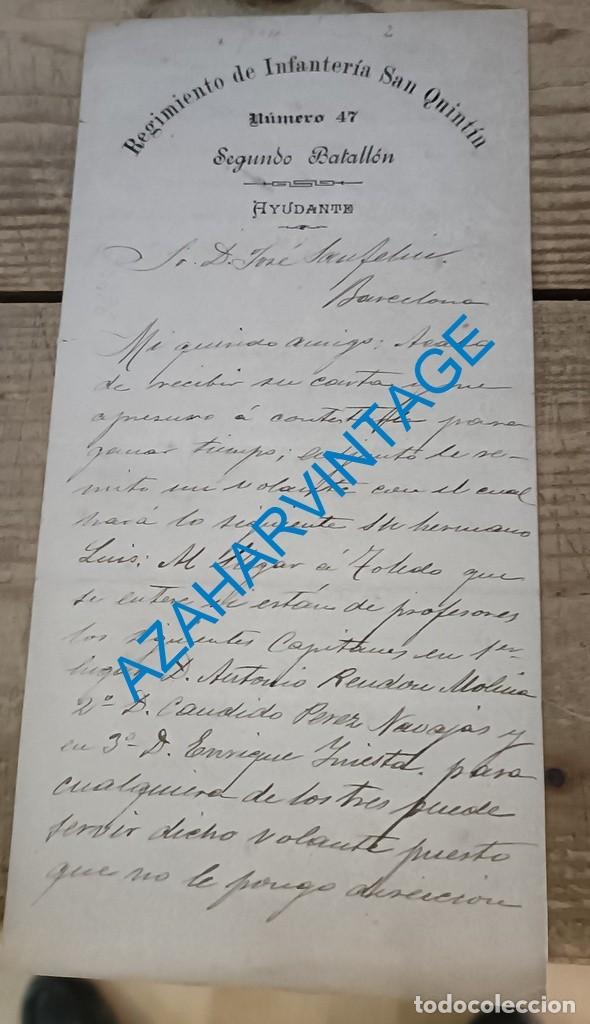 2
Regimiento de Infantería San Quintín
Número 47
Segundo Batallón
AYUDANTE
Sr. D. José Sanfeliu.
Barcelona
Mi querido amigo: Acabo
de recibir su carta y me
apresuro á contestar para
ganar tiempo; adjunto le re-
mito un volante con el cual
hará lo siguiente su hermano
Luis: Al llegar á Toledo que
se entere si están de profesores
los siguientes Capitanes en 1er
lugar D. Antonio Rendon Molina
2º D. Candido Perez Navajas y
en 3º D. Enrique Iniesta. para
cualquiera de los tres puede
servir dicho volante puesto
que no le pongo direccion
AZAHARVINTAGE
todocoleccion